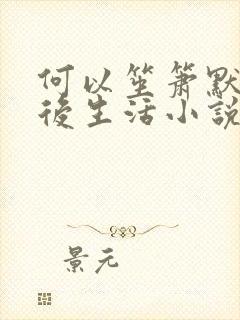 何以笙箫默
後生活小説
景元